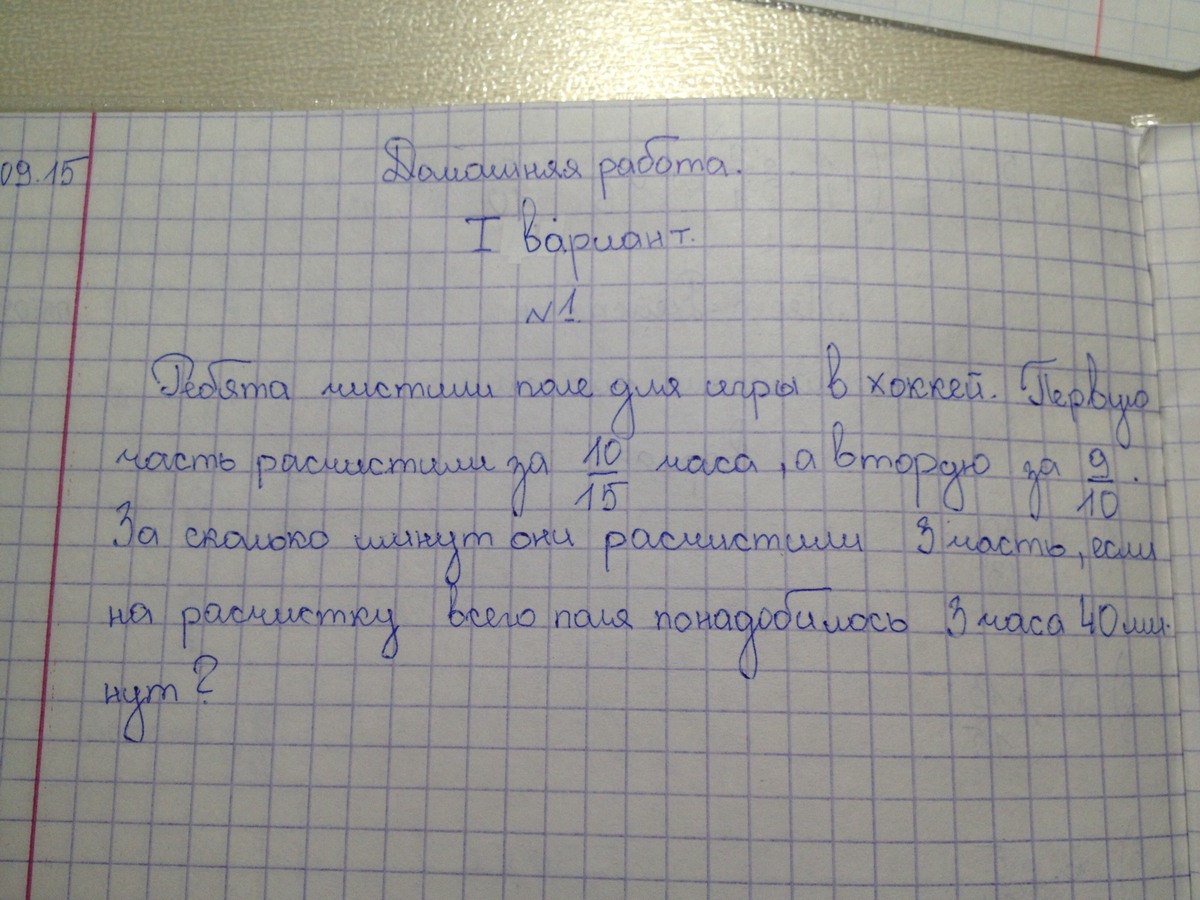 09.15
Домашняя работа.
I вариант.
№1.
Ребята чистили поле для игры в хоккей. Первую
часть расчистили за 10/15 часа, а вторую за 9/10.
За сколько минут они расчистили 3 часть, если
на расчистку всего поля понадобилось 3 часа 40 ми-
нут?